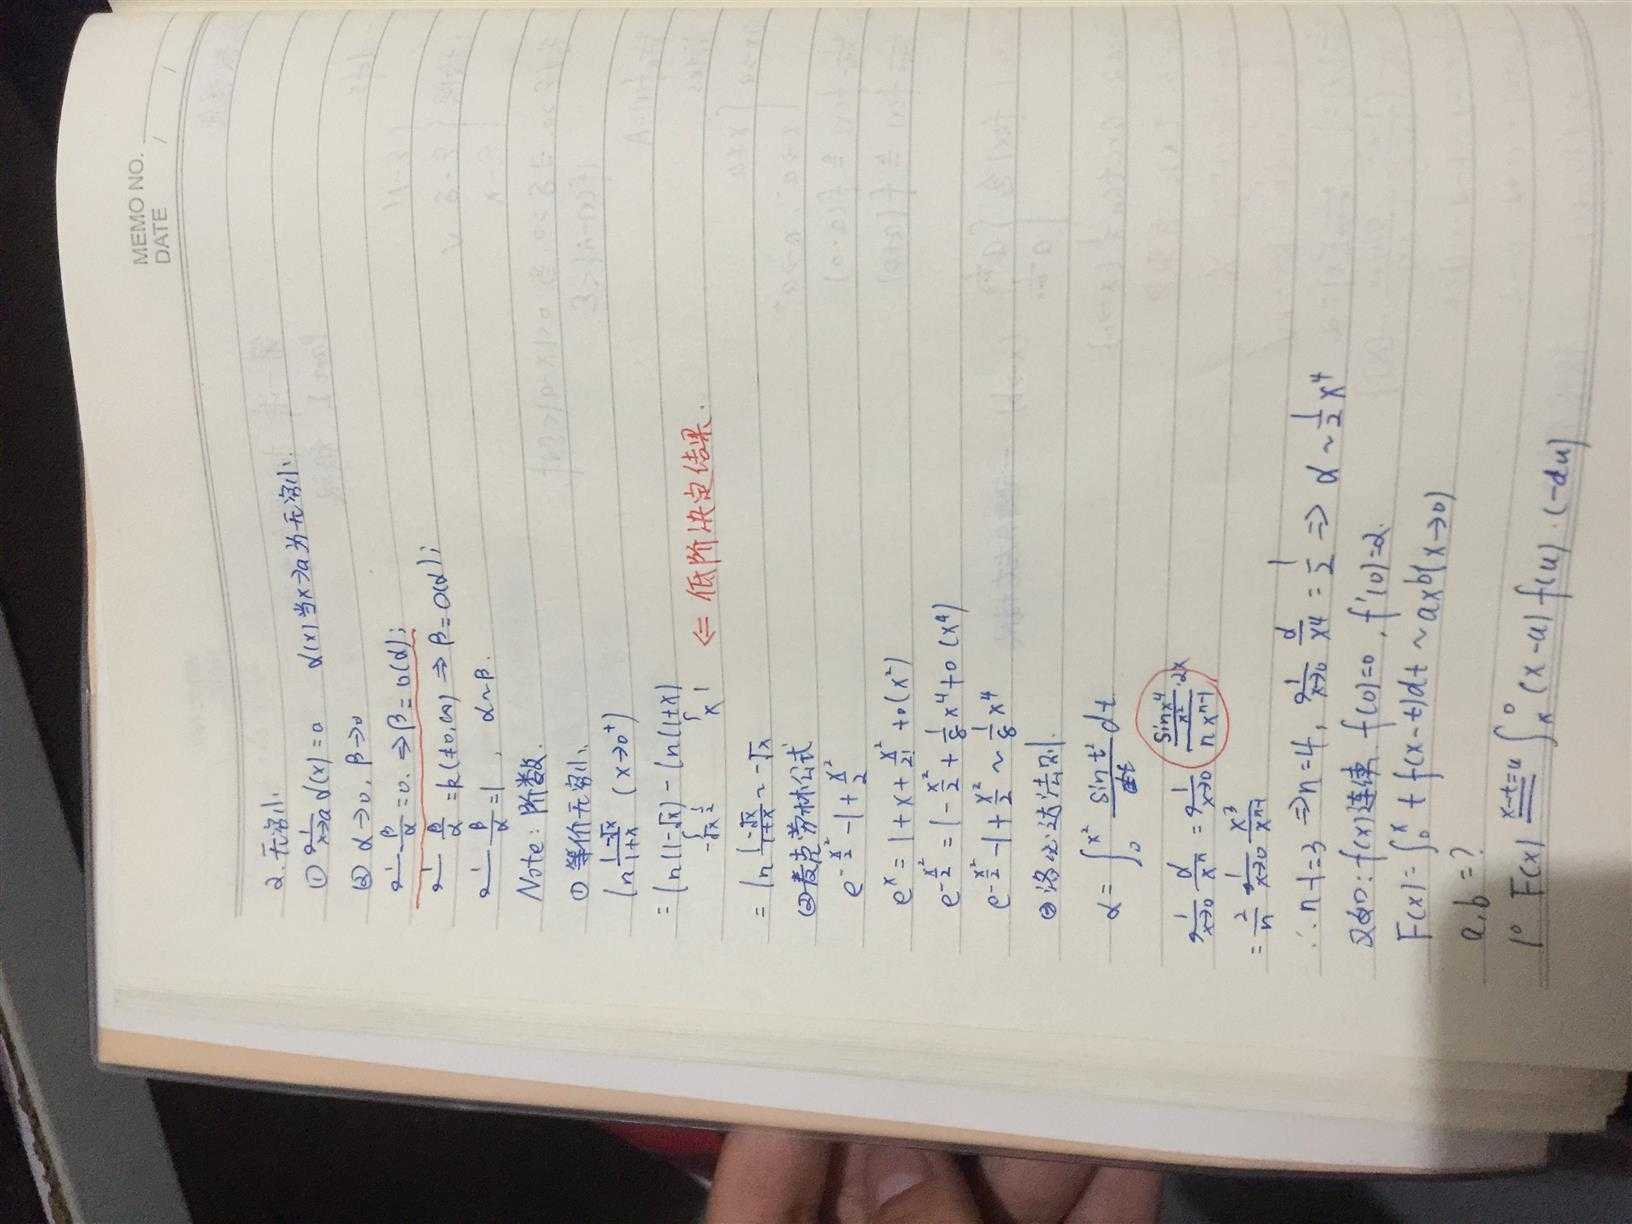 MEMO NO.
DATE / /
2. 无穷小.
① lim x→a α(x)=0 α(x)当x→a为无穷小.
② α→0, β→0
lim β/α=0. ⇒ β=o(α);
lim β/α=k(≠0,∞) ⇒ β=O(α);
lim β/α=1, α~β.
Note: 阶数.
① 等价无穷小.
ln (1-√x)/(1+x) (x→0⁺)
= ln(1-√x) - ln(1+x)
-√x x^(1/2) x¹ ⇐ 低阶决定结果.
= ln (1-√x)/(1+x) ~ -√x
② 麦克劳林公式
e^(-x²/2) -1+ x²/2
e^x = 1+x+ x²/2! +o(x²)
e^(-x²/2) = 1- x²/2 + 1/8 x⁴+o(x⁴)
e^(-x²/2) -1+ x²/2 ~ 1/8 x⁴
③ 洛必达法则.
α = ∫₀^(x²) sint²/t dt
lim x→0 α/xⁿ = lim x→0 (sinx⁴/x² ·2x)/(nx^(n-1))
= 2/n lim x→0 x³/x^(n-1)
∴ n-1=3 ⇒ n=4, lim x→0 α/x⁴ = 1/2 ⇒ α ~ 1/2 x⁴
f(x)连续. f(0)=0, f'(0)=2.
F(x)=∫₀^x t f(x-t)dt ~ ax^b(x→0)
a,b=?
1° F(x) x-t=u = ∫_x^0 (x-u) f(u)·(-du)